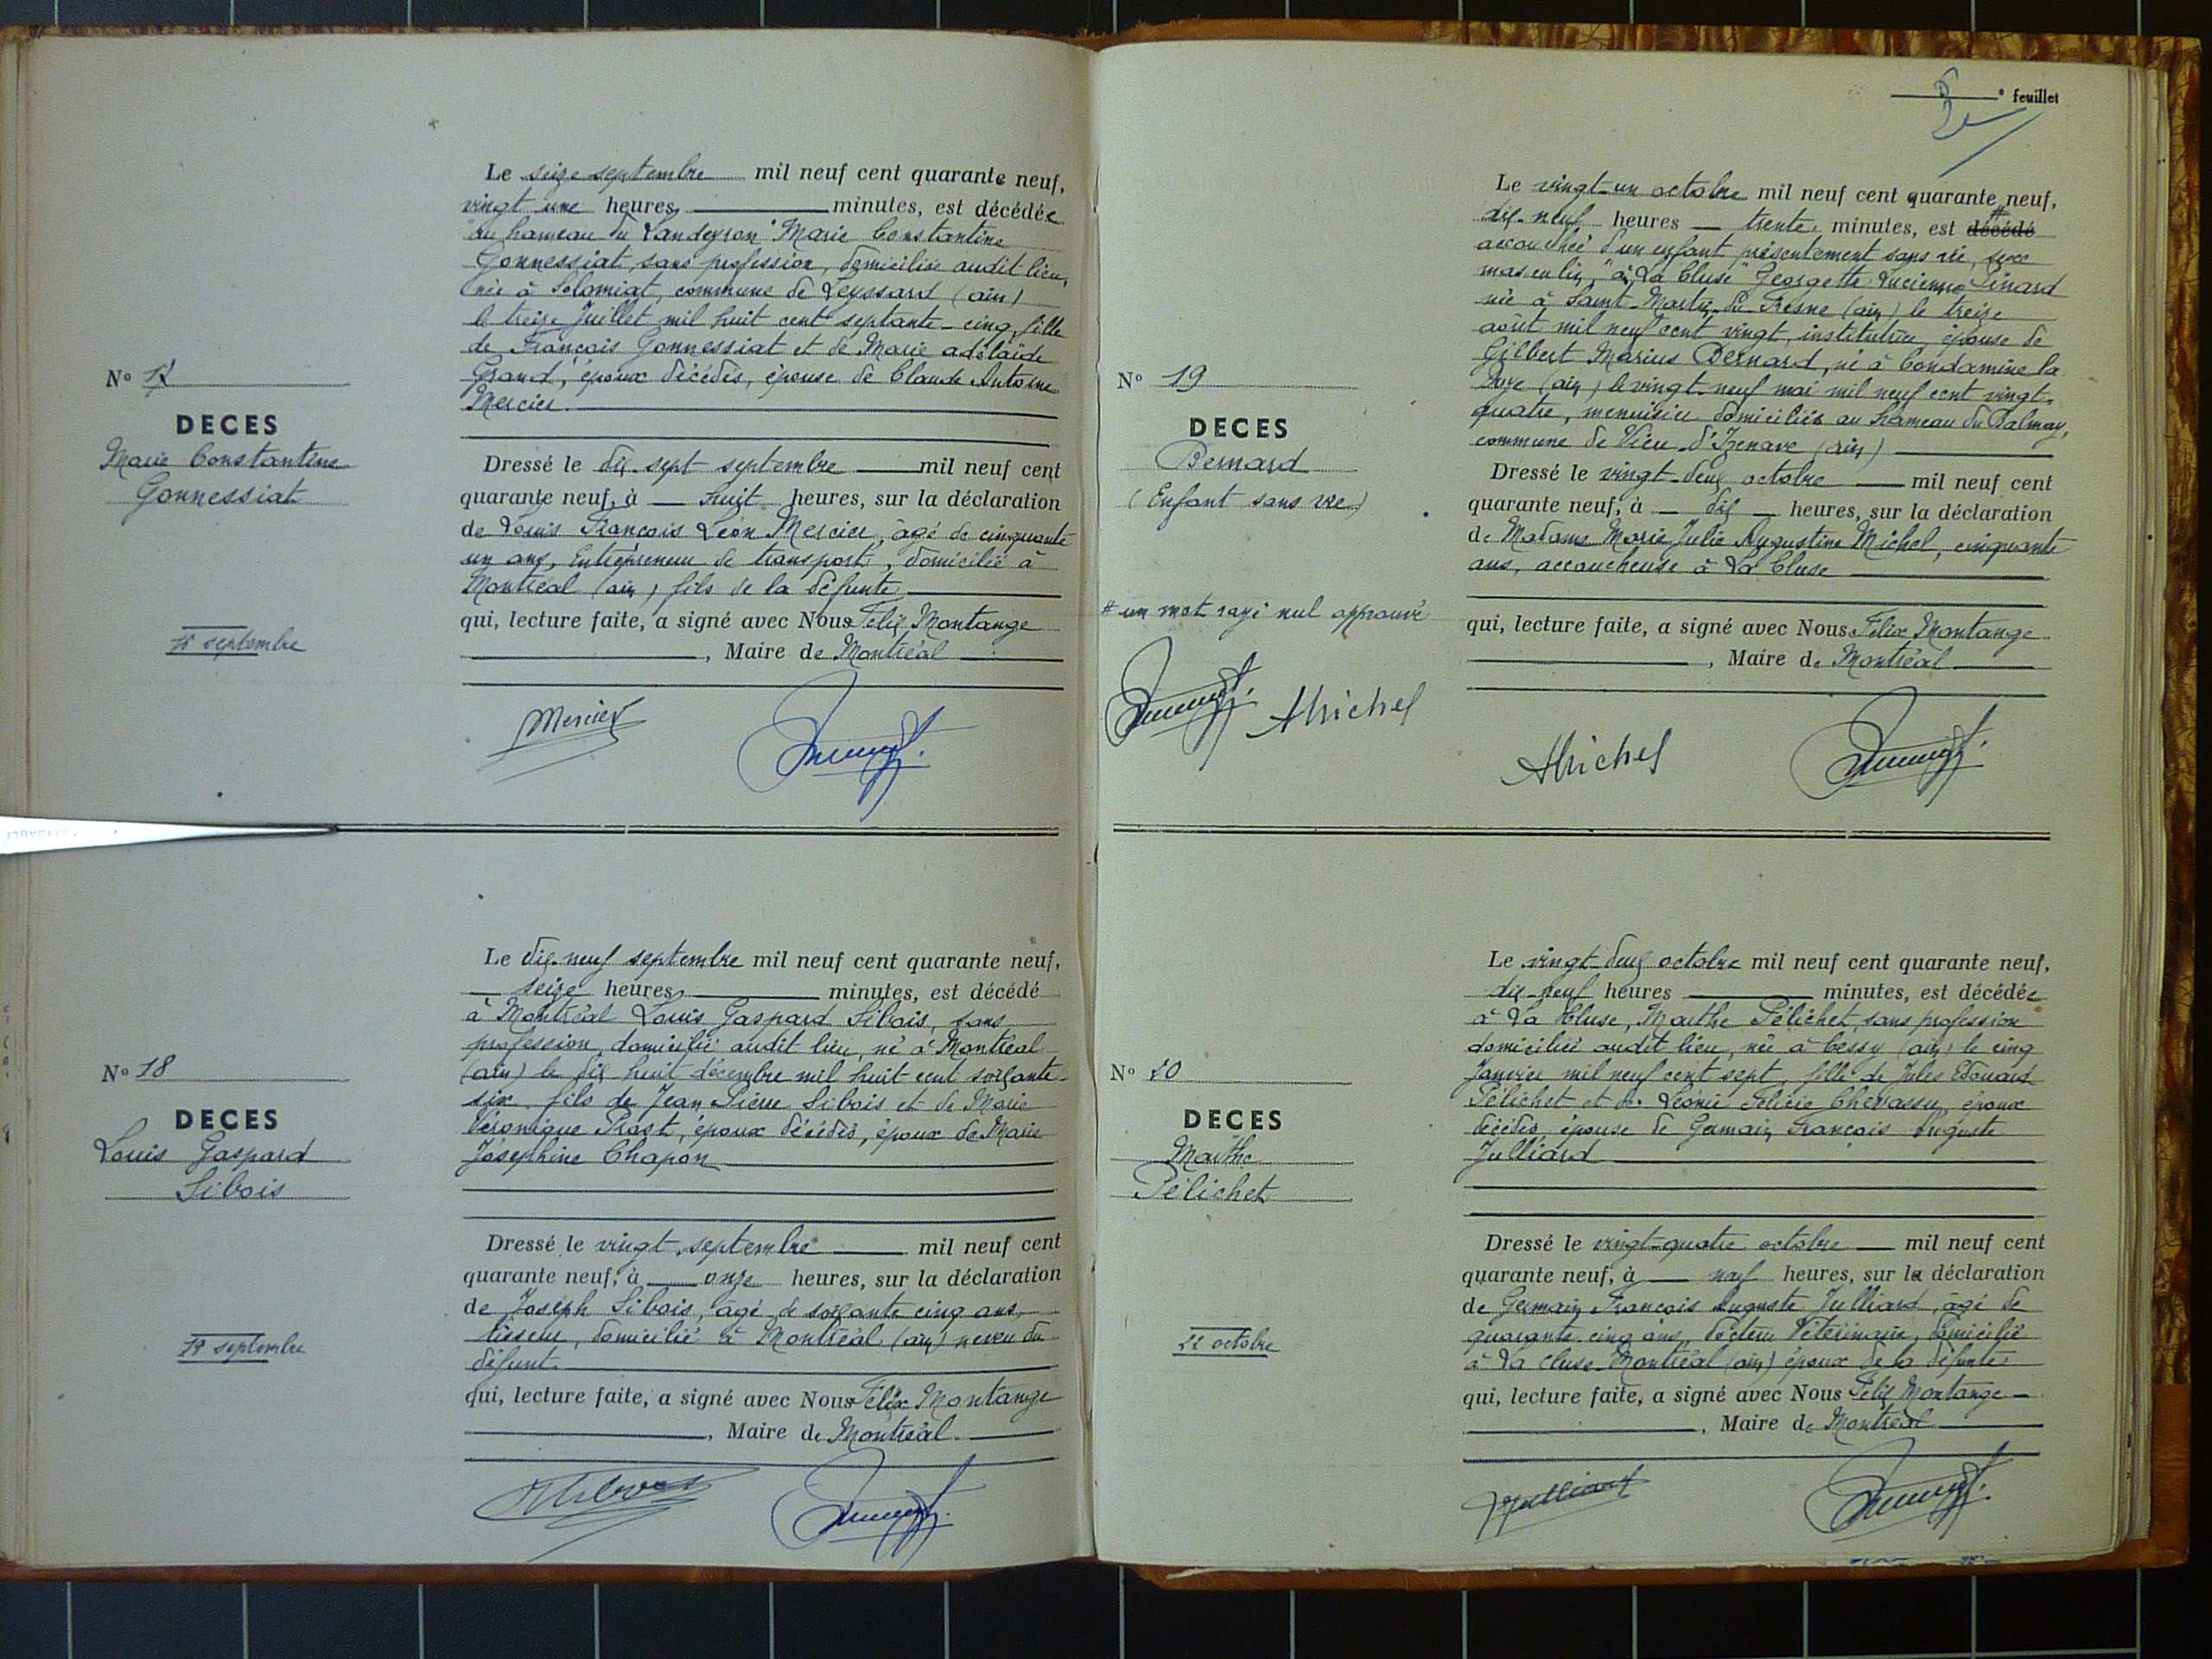 Le seize septembre mil neuf cent quarante neuf,
vingt une heures, minutes, est décédée
"au hameau du Landeyron" Marie Constantine
Gonnessiat, sans profession, domiciliée audit lieu,
née à Solomiat, commune de Leyssard (ain)
le treize Juillet mil huit cent septante-cinq, fille
de François Gonnessiat et de Marie adélaïde
Grand, époux décédés, épouse de Claude Antoine
Mercier.
N° 17
DECES
Marie Constantine
Gonnessiat
Dressé le dix-sept septembre mil neuf cent
quarante neuf, à huit heures, sur la déclaration
de Louis François Léon Mercier, âgé de cinquante
un ans, Entrepreneur de transports, domicilié à
Montréal (ain) fils de la défunte
qui, lecture faite, a signé avec Nous Félix Montange
, Maire de Montréal
septembre
Mercier
Le dix-neuf septembre mil neuf cent quarante neuf,
seize heures, minutes, est décédé
à Montréal Louis Gaspard Sibois, sans
profession, domicilié audit lieu, né à Montréal
(ain) le dix huit décembre mil huit cent soixante-
six, fils de Jean Pierre Sibois et de Marie
Véronique Prost, époux décédés, époux de Marie
Joséphine Chapon
N° 18
DECES
Louis Gaspard
Sibois
Dressé le vingt septembre mil neuf cent
quarante neuf, à onze heures, sur la déclaration
de Joseph Sibois, âgé de soixante cinq ans,
tisseur, domicilié à Montréal (ain) neveu du
défunt.
19 septembre
qui, lecture faite, a signé avec Nous Félix Montange
, Maire de Montréal.
° feuillet
Le vingt-un octobre mil neuf cent quarante neuf,
dix-neuf heures trente minutes, est décédé #
accouchée d'un enfant présentement sans vie, sexe
masculin, "à La Cluse" Georgette Lucienne Pinard
née à Saint-Martin-du-Fresne (ain) le treize
août mil neuf cent vingt, institutrice, épouse de
Gilbert Marius Bernard, né à Condamine la
Doye (ain) le vingt-neuf mai mil neuf cent vingt-
quatre, menuisier domiciliés au hameau du Balmay,
commune de Vieu-d'Izenave (ain)
N° 19
DECES
Bernard
(Enfant sans vie)
Dressé le vingt-deux octobre mil neuf cent
quarante neuf, à dix heures, sur la déclaration
de Madame Marie Julie Augustine Michel, cinquante
ans, accoucheuse à La Cluse
# un mot rayé nul approuvé
qui, lecture faite, a signé avec Nous Félix Montange
, Maire de Montréal
AMichel
AMichel
Le vingt-deux octobre mil neuf cent quarante neuf,
dix-neuf heures minutes, est décédée
à La Cluse, Marthe Pélichet, sans profession
domiciliée audit lieu, née à Cessy (ain) le cinq
Janvier mil neuf cent sept, fille de Jules Edouard
Pélichet et de Léonie Félicie Chevassu, époux
décédés, épouse de Germain François Auguste
Julliard
N° 20
DECES
Marthe
Pélichet
Dressé le vingt-quatre octobre mil neuf cent
quarante neuf, à neuf heures, sur la déclaration
de Germain François Auguste Julliard, âgé de
quarante cinq ans, docteur Vétérinaire, domicilié
à La Cluse-Montréal (ain) époux de la défunte
22 octobre
qui, lecture faite, a signé avec Nous Félix Montange
, Maire de Montréal
Julliard